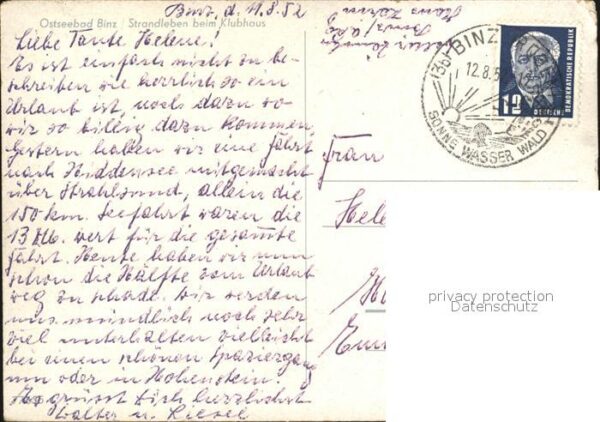 Ostseebad Binz / Strandleben beim Klubhaus
Binz, d. 11.8.52
Liebe Tante Helene!
Es ist einfach nicht zu be-
schreiben wie herrlich so ein
Urlaub ist, noch dazu wo
wir so billig dazu kommen,
Gestern haben wir eine Fahrt
nach Hiddensee mitgemacht
über Strahlsund, allein die
150 km. Seefahrt waren die
13 Mk. wert für die gesammte
Fahrt. Heute haben wir nun
schon die Hälfte vom Urlaub
weg zu schade. Wir werden
uns mündlich noch sehr
viel unterhalten vielleicht
bei einem schönen Spaziergang
um oder in Hohenstein.
Es grüsst Dich herzlichst
Walter u. Liesel
Binz
(13b) BINZ
12.8.5
SONNE WASSER WALD
12
DEUTSCHE
DEMOKRATISCHE REPUBLIK
Frau
Hele
privacy protection
Datenschutz